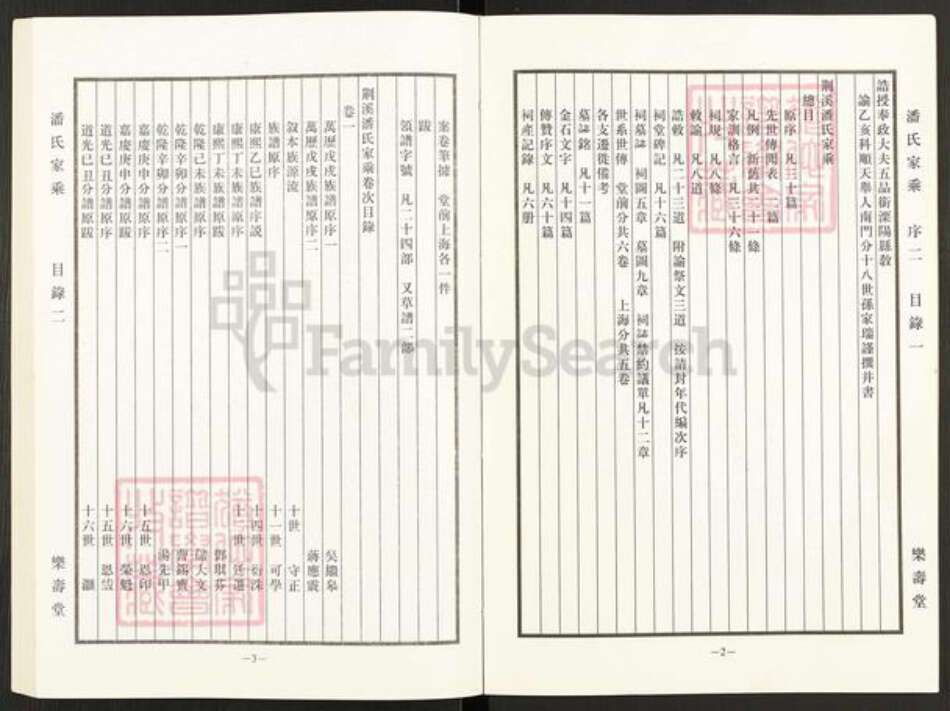 潘氏家乘 序二 目錄一 樂壽堂
誥授奉政大夫五品銜溧陽縣教
諭乙亥科順天舉人南門分十八世孫家瑞謹撰并書
荆溪潘氏家乘
總目
原序 凡三十篇
先世傳聞表 二篇
凡例 新舊共三十一條
家訓格言 凡三十六條
祠規 凡八條
敕諭 凡八道
誥敕 凡二十三道 附諭祭文三道 按請封年代編次序
祠堂碑記 凡十六篇
祠墓誌 祠圖五章 墓圖九章 祠誌禁約議單凡十二章
世系世傳 堂前分共六卷 上海分共五卷
各支遷徙備考
墓誌銘 凡十一篇
金石文字 凡十四篇
傳贊序文 凡六十篇
祠產記錄 凡六册
—2—
案卷筆據 堂前上海各一件
跋
領譜字號 凡二十四部 又草譜二部
荆溪潘氏家乘卷次目錄
卷一
萬歷戊戌族譜原序一 吳繼臯
萬歷戊戌族譜原序二 蔣應震
敍本族源流 十世 守正
族譜原序 十一世 可學
康熙乙巳族譜序説 十四世 衍洙
康熙丁未族譜原序 十世 廷選
康熙丁未族譜原跋 鄧琪棻
乾隆己未族譜原序 儲大文
乾隆辛卯分譜原序一 曹錫寶
乾隆辛卯分譜原序二 湯先甲
嘉慶庚申分譜原序 十五世 恩印
嘉慶庚申分譜原跋 十六世 榮魁
道光己丑分譜原序 十五世 恩
道光己丑分譜原跋 十六世 灝
潘氏家乘 目錄二 樂壽堂
—3—
FamilySearch